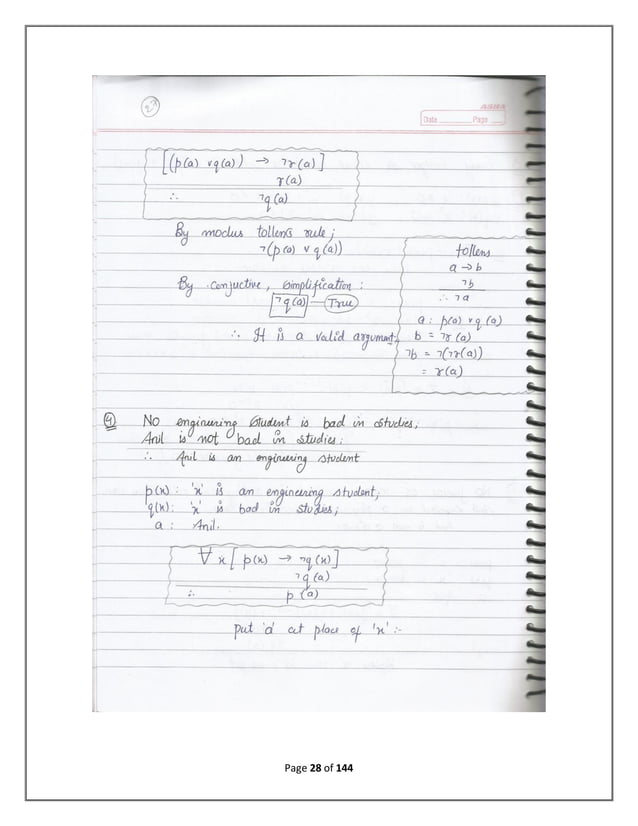 27
ASHA
Date Page
[(p(a) ∨ q(a)) → ¬r(a)]
r(a)
∴ ¬q(a)
By modus tollens rule;
¬(p(a) ∨ q(a))
By conjuctive, simplification:
¬q(a) — True
∴ It is a valid argument.
tollens
a → b
¬b
∴ ¬a
a : p(a) ∨ q(a)
b = ¬r(a)
¬b = ¬(¬r(a))
= r(a)
4) No enginuring student is bad in studies;
Anil is not bad in studies;
∴ Anil is an enginuring student
p(x) : 'x' is an enginuring student;
q(x): 'x' is bad in studies;
a : Anil.
∀x [p(x) → ¬q(x)]
¬q(a)
∴ p(a)
put 'a' at place of 'x' :-
Page 28 of 144